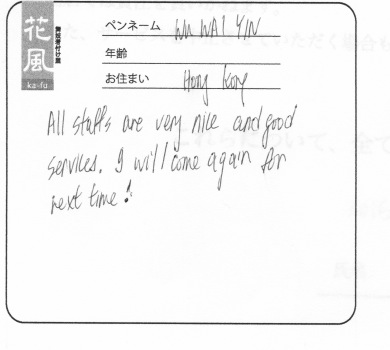 花風
舞妓着付け屋
ka-fu
ペンネーム WU WAI YIN
年齢
お住まい Hong Kong
All staffs are very nice and good
services. I will come again for
next time!